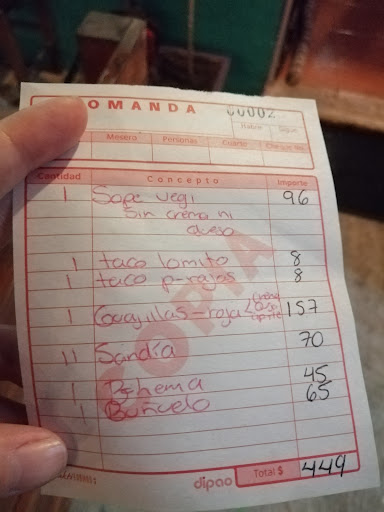 OMANDA 00002
Sigue
Mesero Personas Cuarto Cheque No.
Cantidad Concepto Importe
1 Sope vegi 96
Sin crema ni
queso
1 taco lomito 8
1 taco p-rajas 8
crema
1 -roja 157
70
11 Sandía
45
1 65
1 Buñuelo
COPIA
dipao Total $ 449